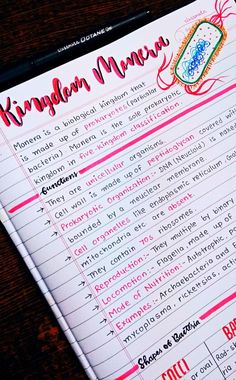 DOTANE
Kingdom Monera
Monera is a biological kingdom that
is made up of prokaryotes (particular
bacteria). Monera is the sole prokaryotic
kingdom in five kingdom classification.
Functions
→ They are unicellular organisms.
→ Cell wall is made up of peptidoglycan covered with
→ Prokaryotic Organization :- DNA (Nucleoid) is naked
bounded by a nuclear membrane.
→ Cell organelles like endoplasmic reticulum
mitochondria etc are absent.
→ They contain 70S ribosomes.
→ Reproduction :- They multiply by binary
→ Locomotion :- Flagella, moves
→ Mode of Nutrition :- Autotrophic,
→ Examples :- Archaebacteria and
mycoplasma, rickettsias, acti
Shapes of Bacteria
CCI
BA
Rod-s